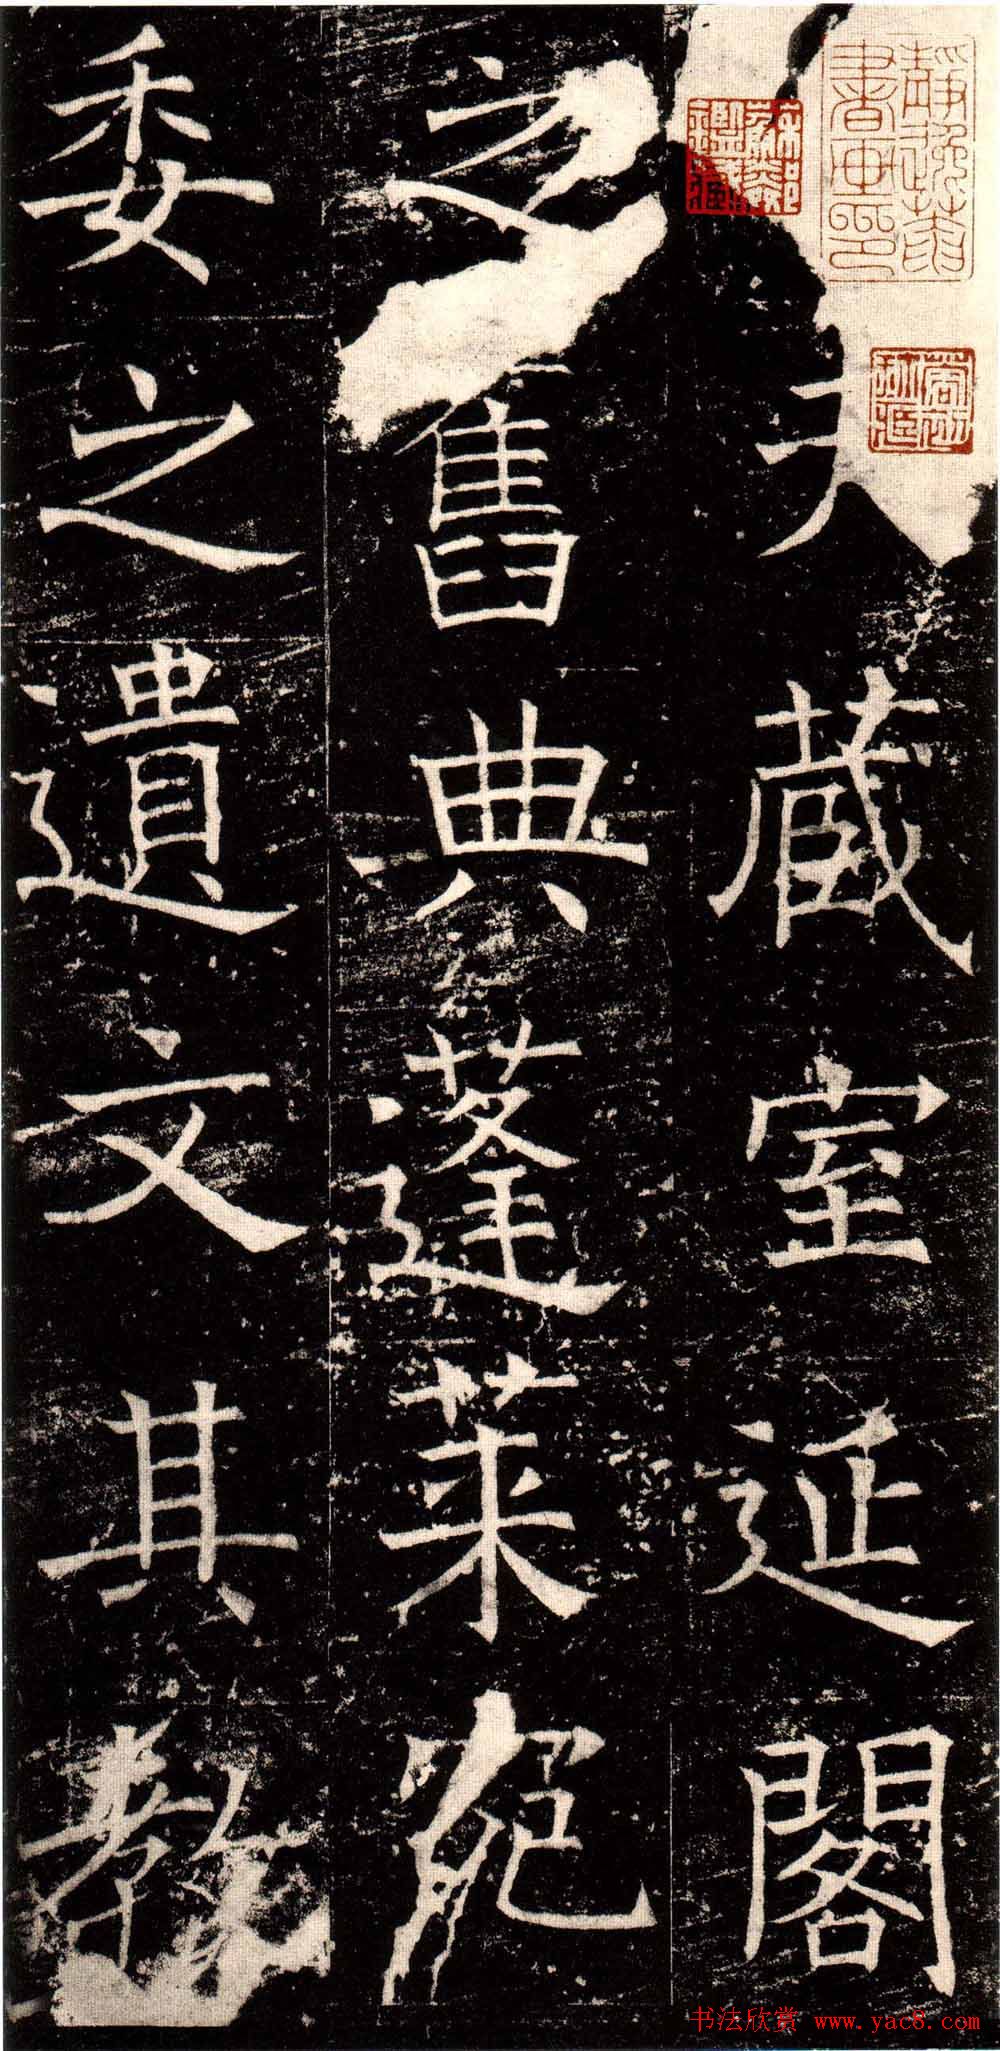 夫藏室延閣
之舊典蓬莱宛
委之遺文其教
蘇鄰鑑藏
书法欣赏 www.yac8.com